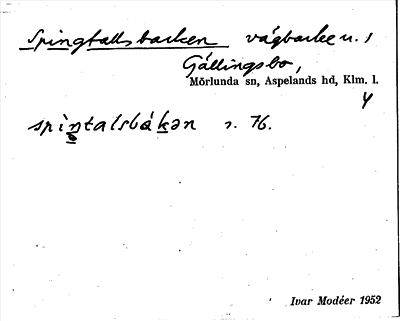 Spingtallsbacken vägbacke n. 1
Gällingsbo,
Mörlunda sn, Aspelands hd, Klm. l.
4
spìntalsbákən s. 76.
Ivar Modéer 1952